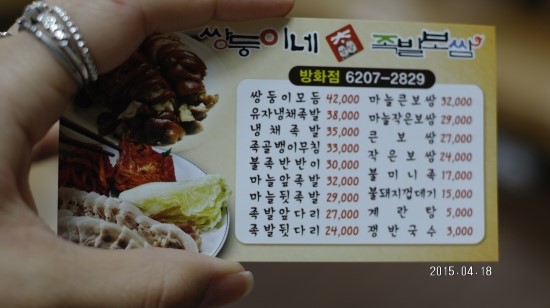 쌍둥이네 족발보쌈
방화점 6207-2829
쌍둥이모듬 42,000 마늘큰보쌈 32,000
유자냉채족발 38,000 마늘작은보쌈 29,000
냉채족발 35,000 큰보쌈 27,000
족골뱅이무침 33,000 작은보쌈 24,000
불족반반이 30,000 불미니족 17,000
마늘앞족발 32,000 불돼지껍데기 15,000
마늘뒷족발 29,000 계란탕 5,000
족발앞다리 27,000 쟁반국수 3,000
족발뒷다리 24,000
2015.04.18